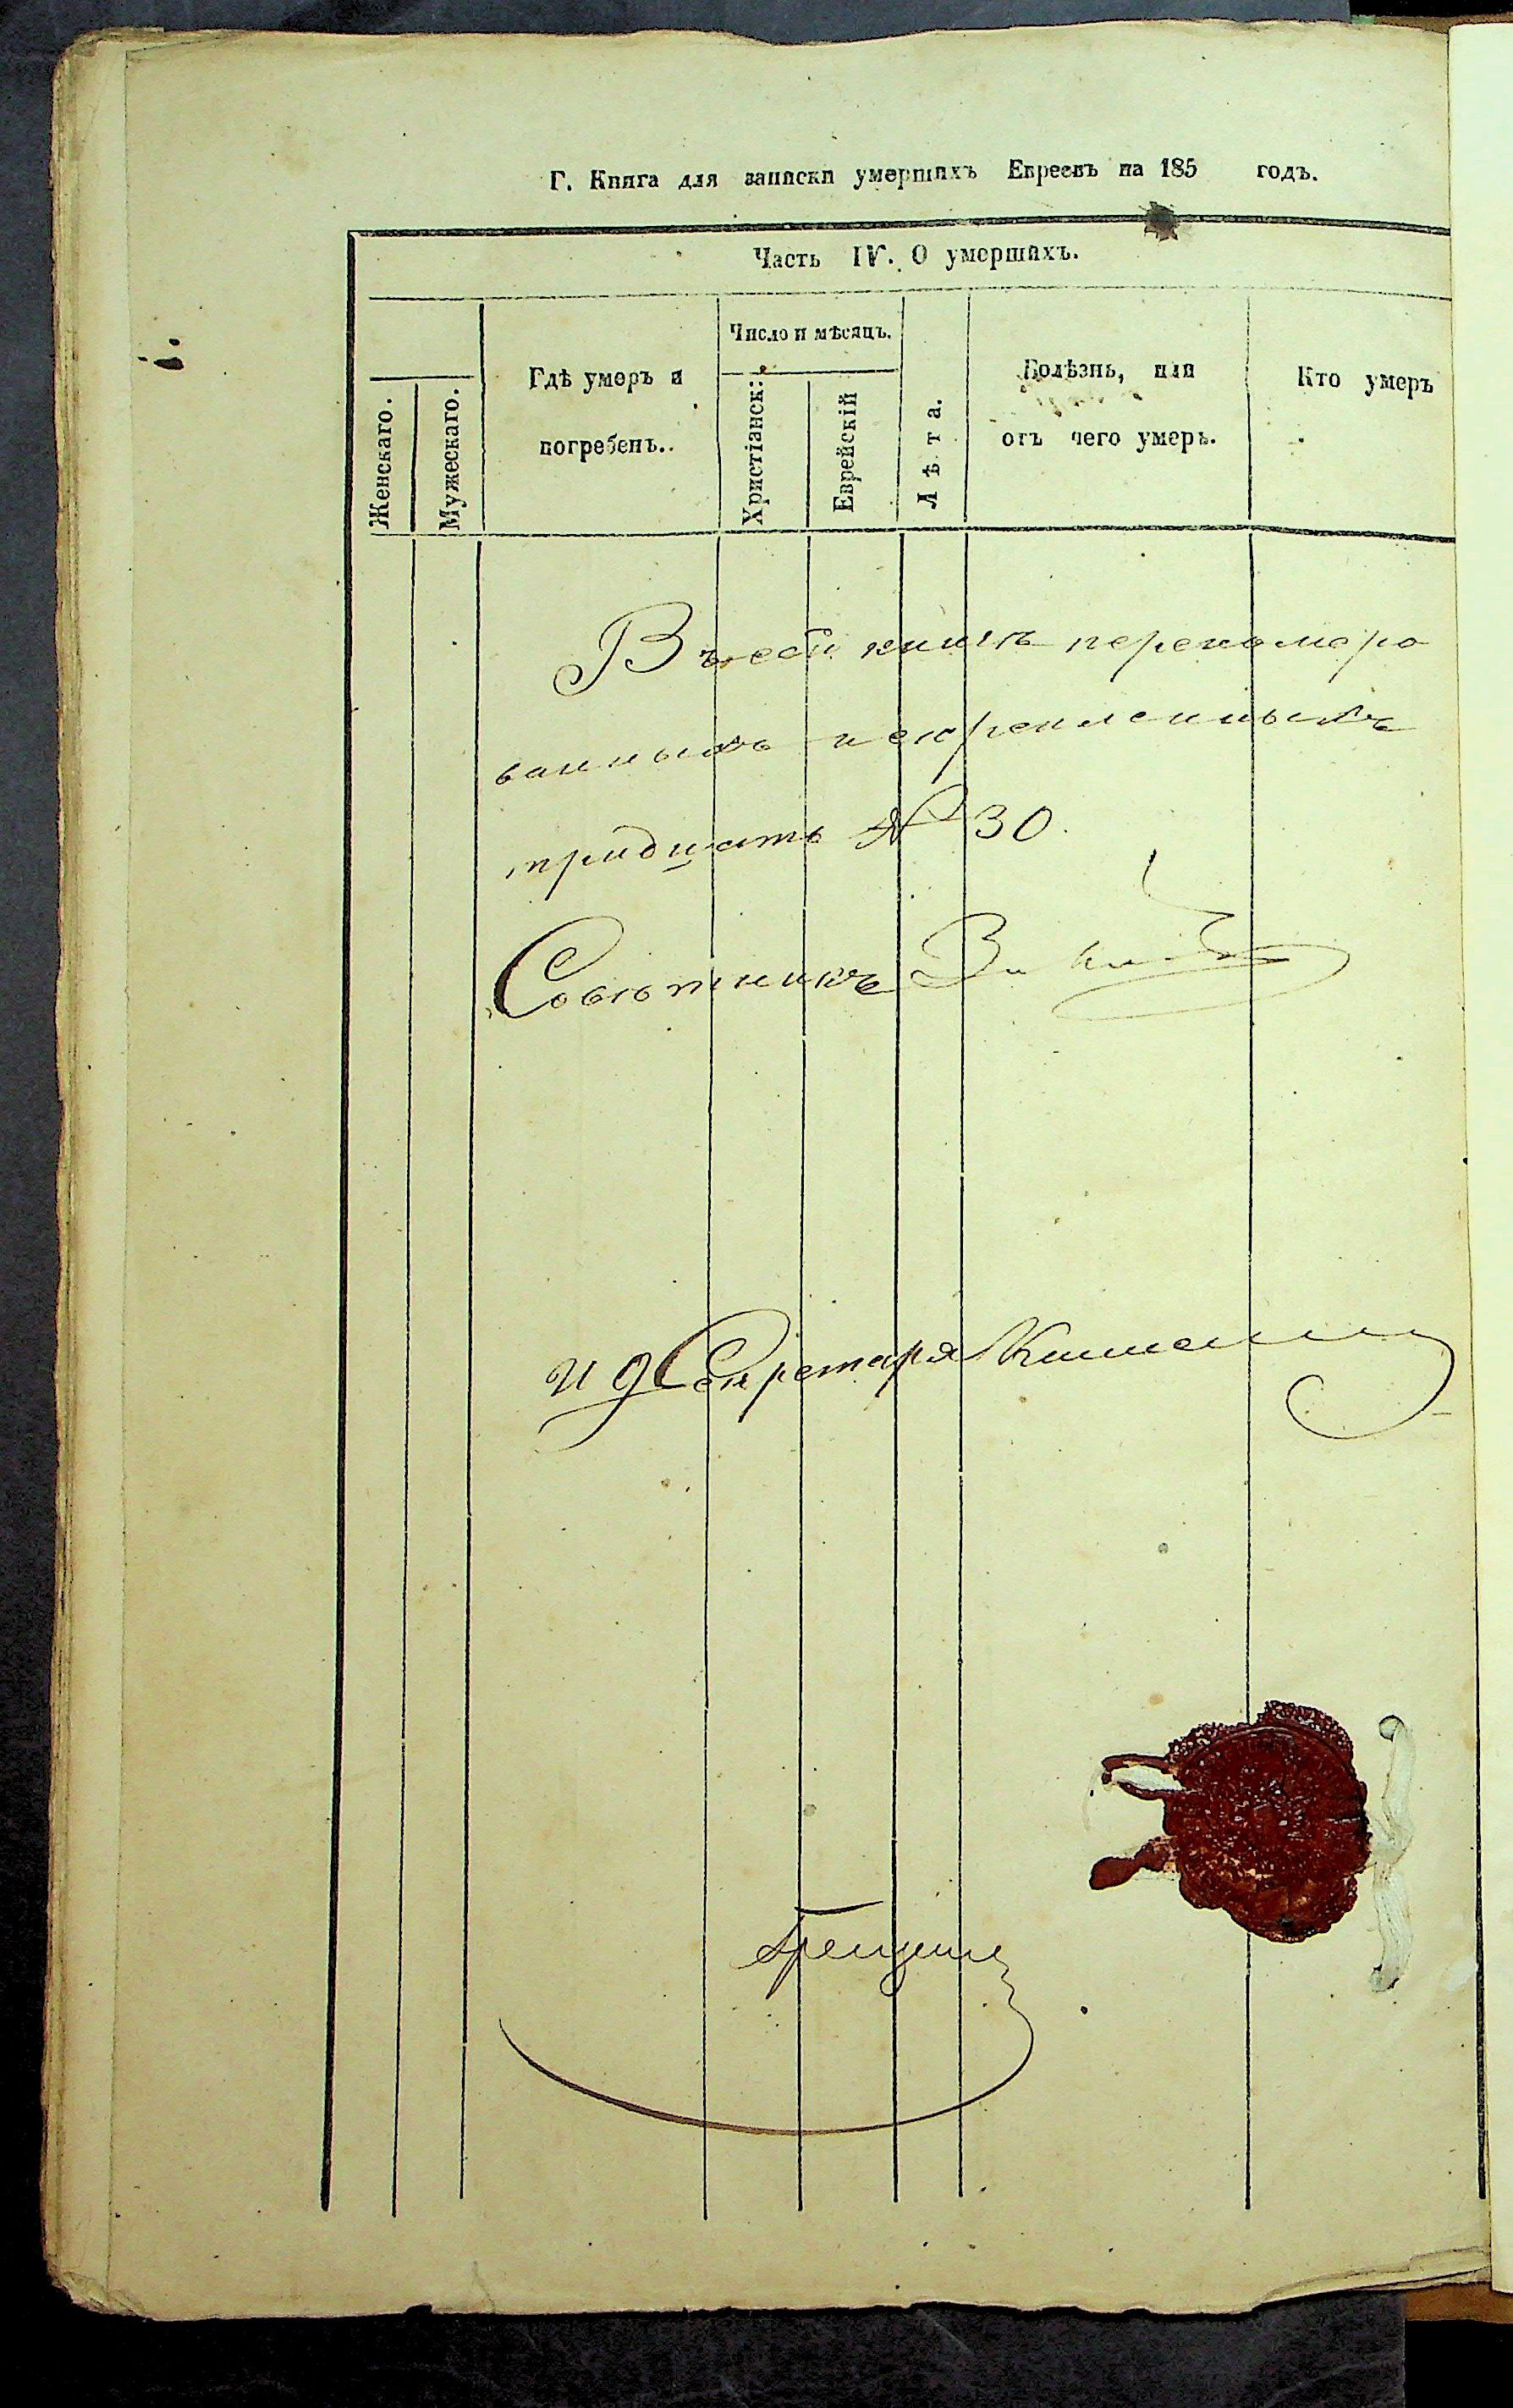 Г. Книга для записки умершихъ Евреевъ на 185 годъ.
Часть IV. О умершихъ.
Женскаго.
Мужескаго.
Гдѣ умеръ и
погребенъ.
Число и мѣсяцъ.
Христіанск:
Еврейскій
Лѣта.
Болѣзнь, или
отъ чего умеръ.
Кто умеръ
Въ сей книгѣ перенумеро
ванныхъ и скрепленныхъ
тридцать № 30.
Совѣтникъ
И д Секретаря